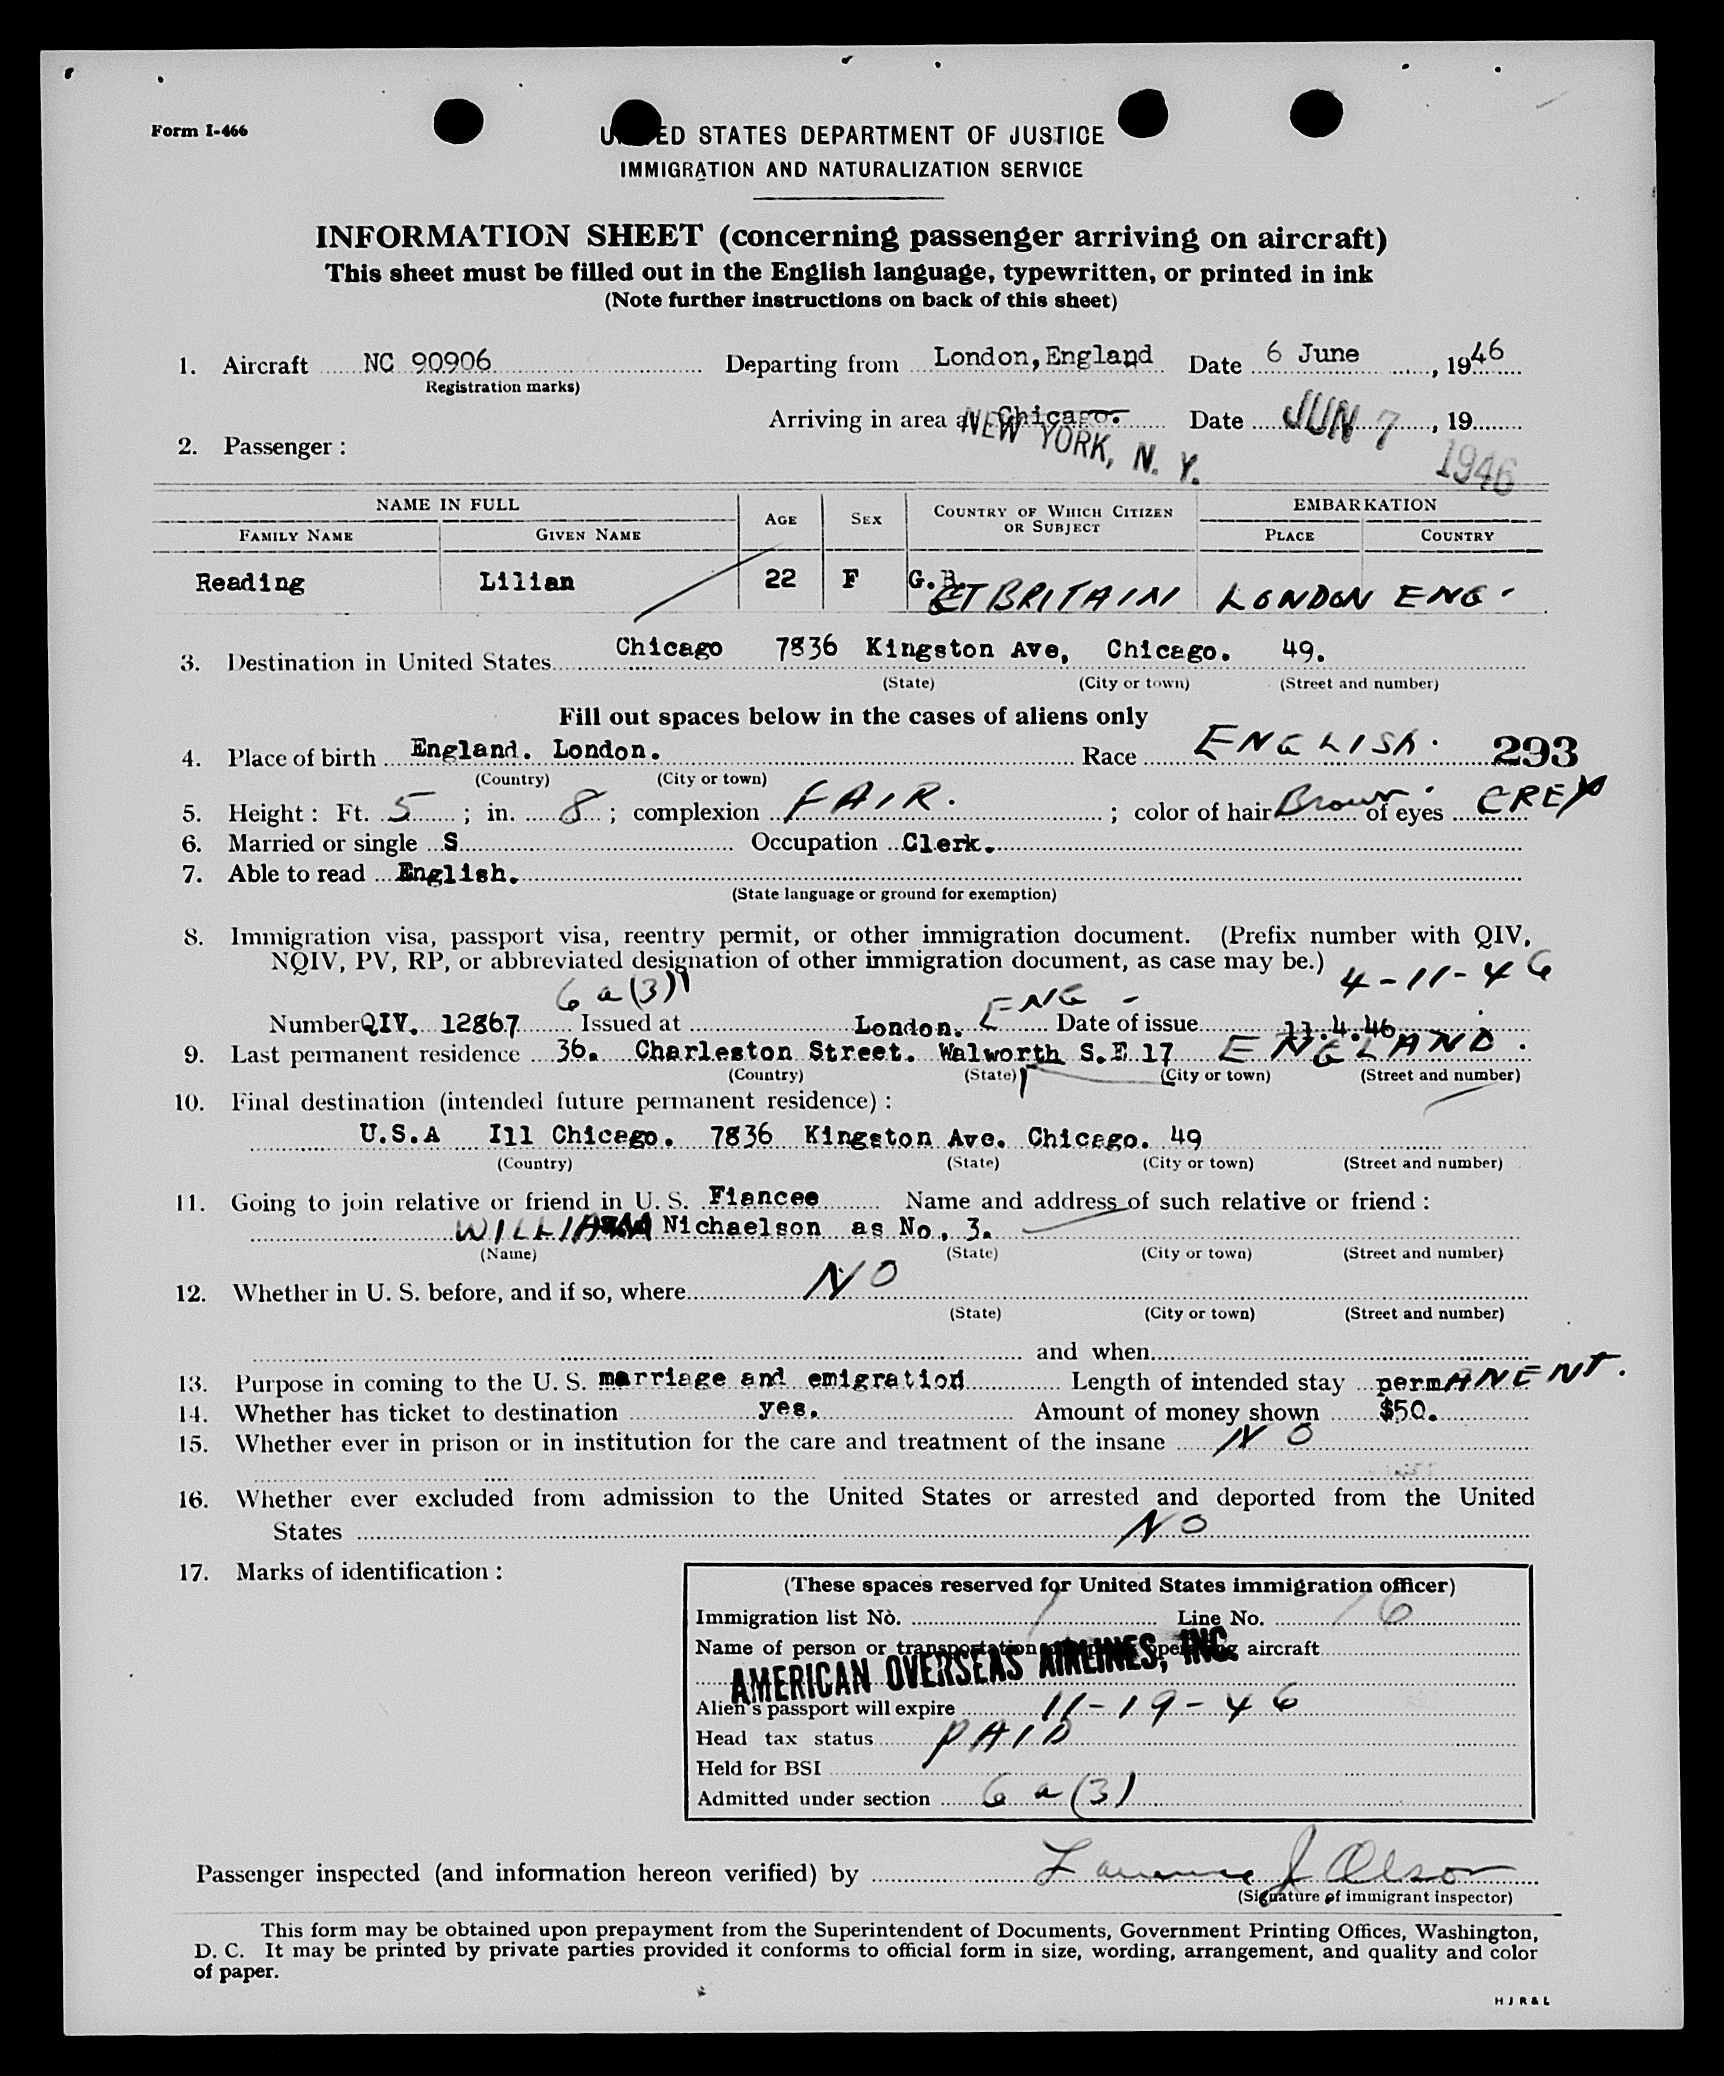 Form I-466
UNITED STATES DEPARTMENT OF JUSTICE
IMMIGRATION AND NATURALIZATION SERVICE
INFORMATION SHEET (concerning passenger arriving on aircraft)
This sheet must be filled out in the English language, typewritten, or printed in ink
(Note further instructions on back of this sheet)
1. Aircraft NC 90906 Departing from London, England Date 6 June, 1946
(Registration marks)
Arriving in area at Chicago. Date JUN 7, 19
NEW YORK, N. Y. 1946
2. Passenger :
NAME IN FULL AGE SEX COUNTRY OF WHICH CITIZEN OR SUBJECT EMBARKATION
FAMILY NAME GIVEN NAME PLACE COUNTRY
Reading Lilian 22 F G.B. GT BRITAIN LONDON ENG.
3. Destination in United States Chicago 7836 Kingston Ave, Chicago. 49.
(State) (City or town) (Street and number)
Fill out spaces below in the cases of aliens only
4. Place of birth England. London. Race ENGLISH. 293
(Country) (City or town)
5. Height : Ft. 5 ; in. 8 ; complexion FAIR. ; color of hair Brown. of eyes GREY
6. Married or single S Occupation Clerk.
7. Able to read English.
(State language or ground for exemption)
8. Immigration visa, passport visa, reentry permit, or other immigration document. (Prefix number with QIV,
NQIV, PV, RP, or abbreviated designation of other immigration document, as case may be.) 4-11-46
6 a (3)
Number QIV. 12867 Issued at London. ENG - Date of issue 11.4.46
9. Last permanent residence 36. Charleston Street. Walworth S.E.17 ENGLAND.
(Country) (State) (City or town) (Street and number)
10. Final destination (intended future permanent residence) :
U.S.A Ill Chicago. 7836 Kingston Ave. Chicago. 49
(Country) (State) (City or town) (Street and number)
11. Going to join relative or friend in U. S. Fiancee Name and address of such relative or friend :
WILLIAM Nichaelson as No. 3.
(Name) (State) (City or town) (Street and number)
12. Whether in U. S. before, and if so, where NO
(State) (City or town) (Street and number)
and when
13. Purpose in coming to the U. S. marriage and emigration Length of intended stay permANENT.
14. Whether has ticket to destination yes. Amount of money shown $50.
15. Whether ever in prison or in institution for the care and treatment of the insane NO
16. Whether ever excluded from admission to the United States or arrested and deported from the United
States NO
17. Marks of identification :
(These spaces reserved for United States immigration officer)
Immigration list No. 1 Line No. 16
Name of person or transportation operating aircraft
AMERICAN OVERSEAS AIRLINES, INC.
Alien's passport will expire 11-19-46
Head tax status PAID
Held for BSI
Admitted under section 6 a (3)
Passenger inspected (and information hereon verified) by Lawrence J Olson
(Signature of immigrant inspector)
This form may be obtained upon prepayment from the Superintendent of Documents, Government Printing Offices, Washington,
D. C. It may be printed by private parties provided it conforms to official form in size, wording, arrangement, and quality and color
of paper.
H J R & L